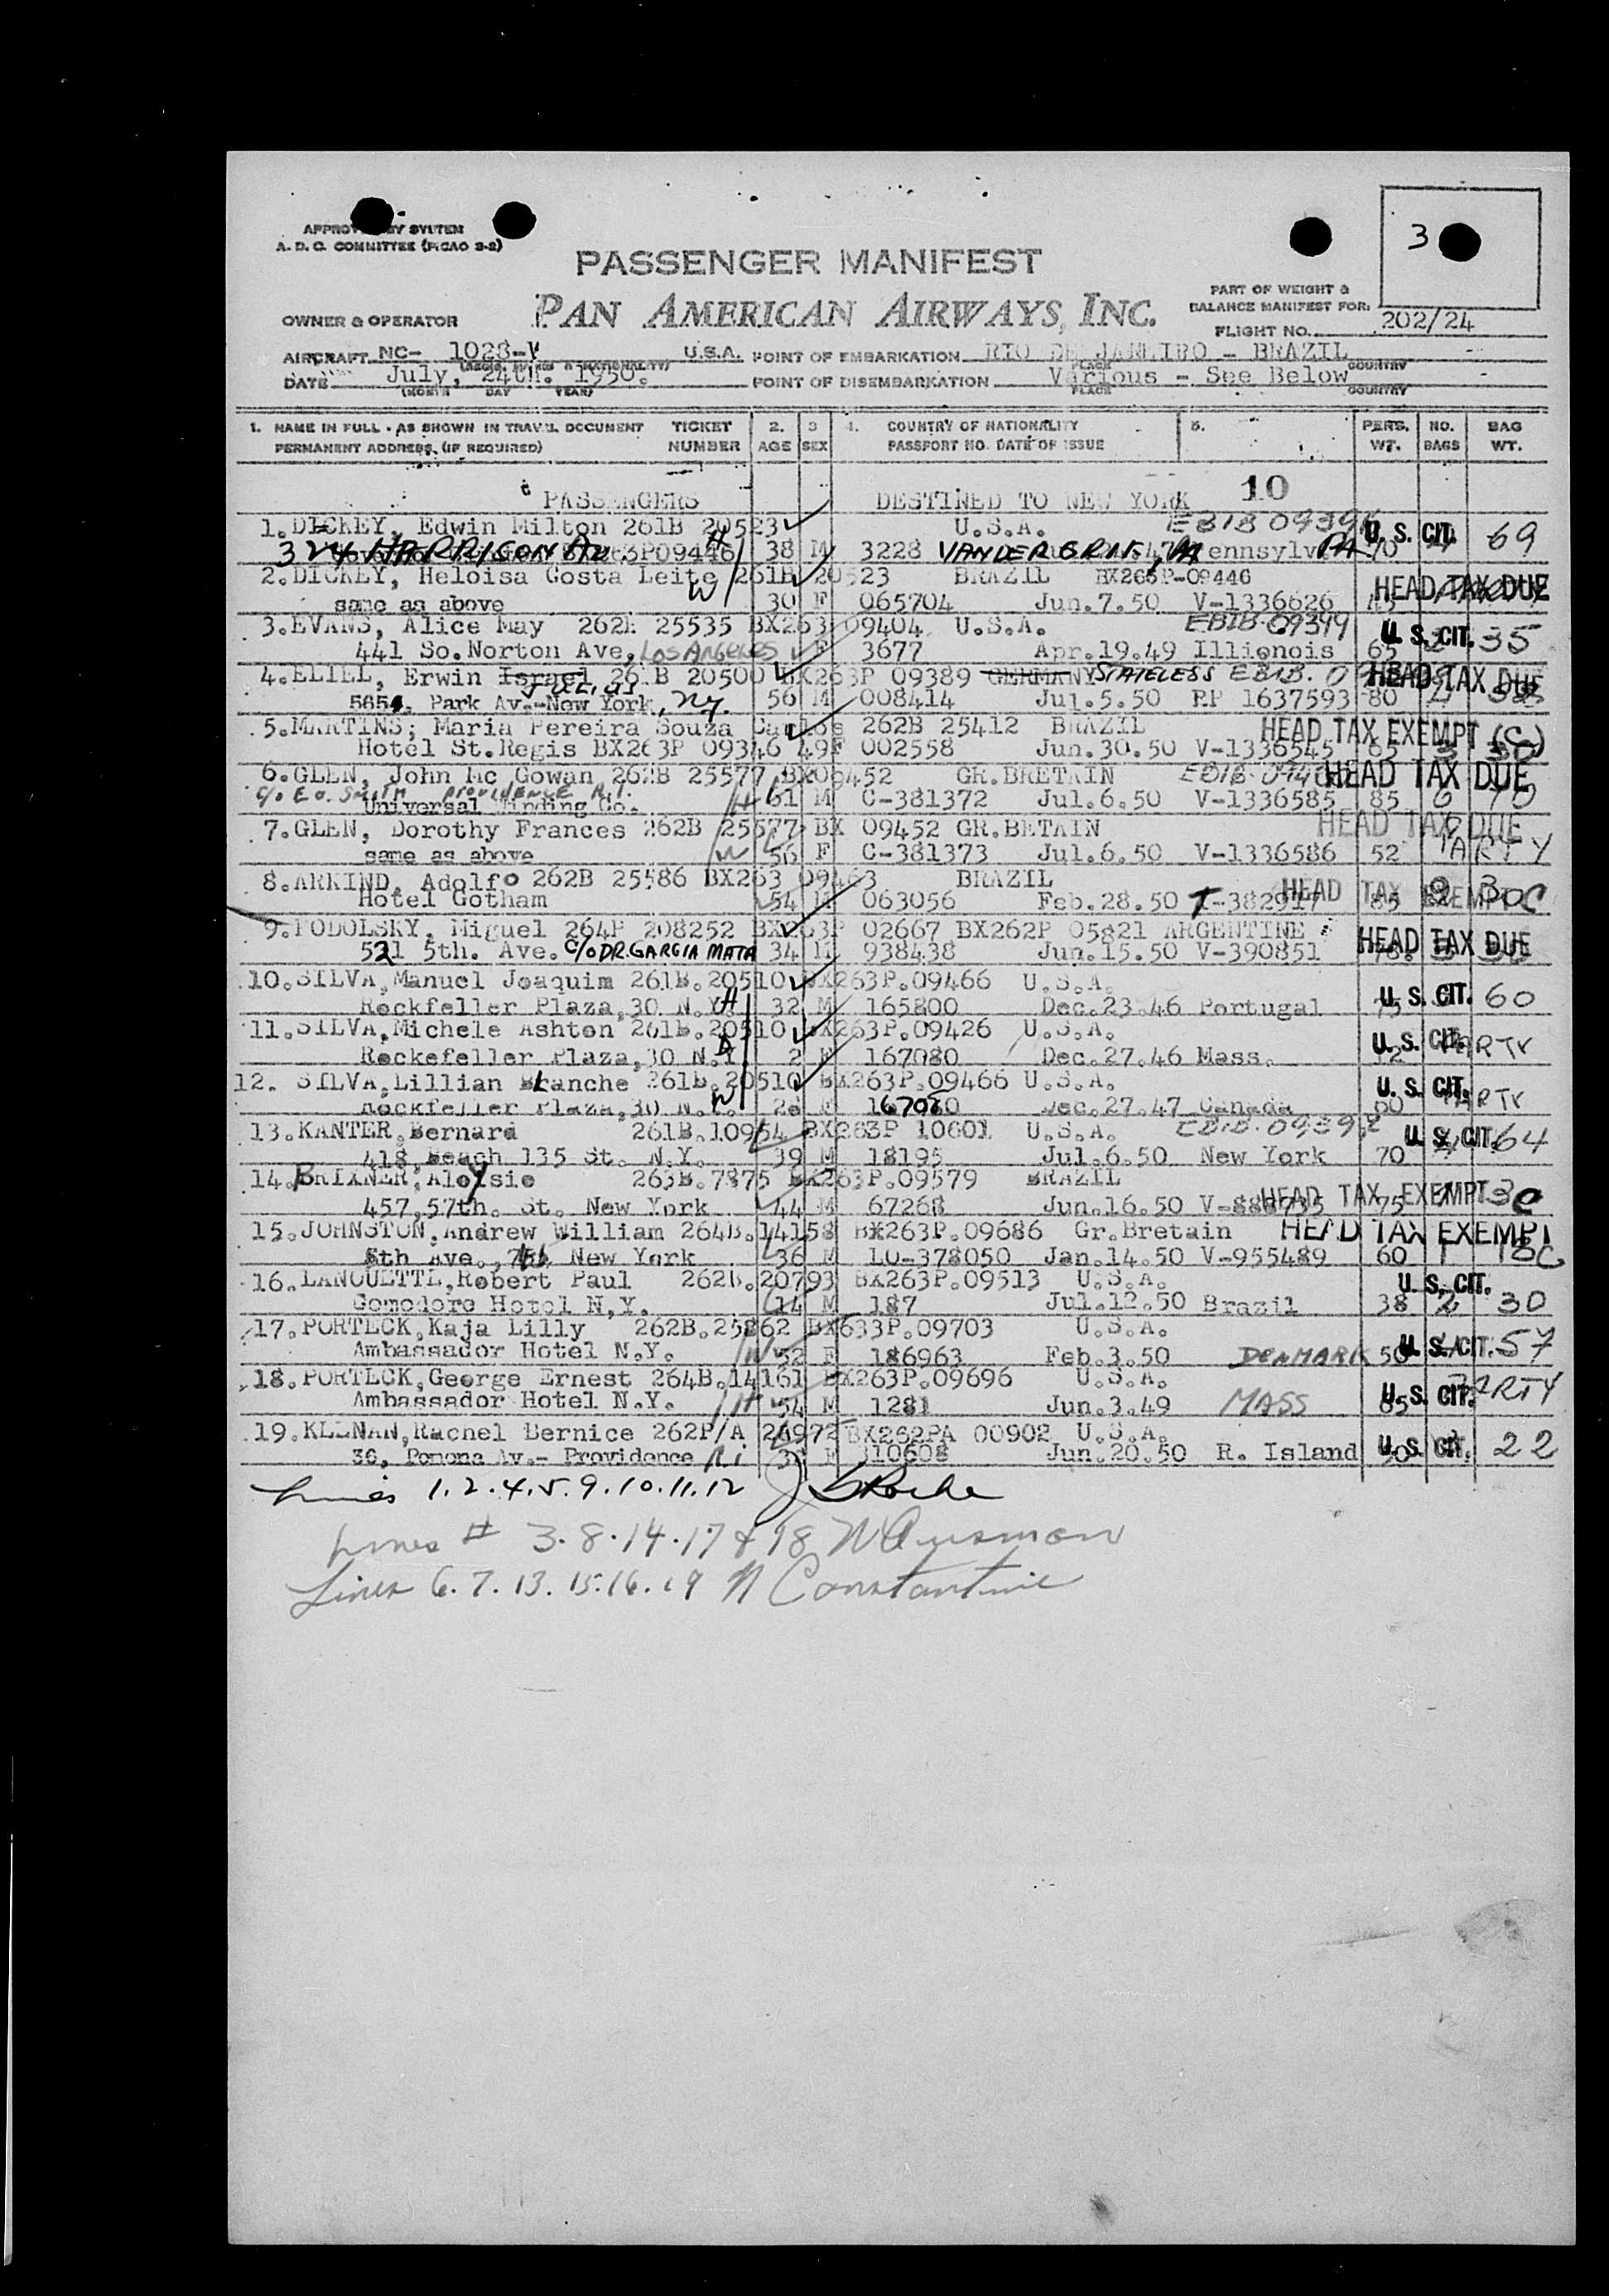 3
A. D. C. COMMITTEE (PICAO S-2)
PASSENGER MANIFEST
PART OF WEIGHT &
BALANCE MANIFEST FOR:
OWNER & OPERATOR PAN AMERICAN AIRWAYS, INC.
FLIGHT NO. 202/24
AIRCRAFT NC- 1028-V U.S.A. POINT OF EMBARKATION RIO DE JANEIRO - BRAZIL
DATE July, 24th. 1950. POINT OF DISEMBARKATION Various - See Below
(MONTH DAY YEAR) PLACE COUNTRY
1. NAME IN FULL - AS SHOWN IN TRAVEL DOCUMENT TICKET 2. 3 4. COUNTRY OF NATIONALITY 5. PERS. NO. BAG
PERMANENT ADDRESS, (IF REQUIRED) NUMBER AGE SEX PASSPORT NO. DATE OF ISSUE WT. BAGS WT.
PASSENGERS DESTINED TO NEW YORK 10
1. DICKEY, Edwin Milton 261B 20523 U.S.A. U. S. CIT. 69
324 HARRISON AV. 3P09446 H 38 M 3228 PA 70
2. DICKEY, Heloisa Costa Leite 261B 20523 BRAZIL BX263P-09446 HEAD TAX DUE
same as above W 30 F 065704 Jun.7.50 V-1336626
3. EVANS, Alice May 262B 25535 BX263 09404 U.S.A. EBIB-09399 U. S. CIT. 35
441 So. Norton Ave, LOS ANGELES F 3677 Apr.19.49 Illionois 65
4. ELIEL, Erwin Israel 261B 20500 BX263P 09389 GERMANY STATELESS EBIB. HEAD TAX DUE
JULIUS
565, Park Av.-New York, NY. 56 M 008414 Jul.5.50 RP 1637593 80
5. MARTINS; Maria Pereira Souza 262B 25412 BRAZIL HEAD TAX EXEMPT (C)
Hotel St.Regis BX263P 09346 49F 002558 Jun.30.50 V-1336545 65
6. GLEN, John Mc Gowan 262B 25577 BX09452 GR.BRETAIN HEAD TAX DUE
C/O E.O. SMITH PROVIDENCE R.I.
Universal Winding Co. H 61 M C-381372 Jul.6.50 V-1336585 85 6 70
7. GLEN, Dorothy Frances 262B 25577 BX 09452 GR.BETAIN HEAD TAX DUE
same as above W 56 F C-381373 Jul.6.50 V-1336586 52 PARTY
8. ARKIND, Adolfo 262B 25586 BX263 09463 BRAZIL
Hotel Gotham 54 M 063056 Feb.28.50 HEAD TAX EXEMPT C
9. PODOLSKY, Miguel 264P 208252 BX263P 02667 BX262P 05821 ARGENTINE
521 5th. Ave. C/O DR. GARCIA MATA 34 M 938438 Jun.15.50 V-390851 HEAD TAX DUE
10. SILVA, Manuel Joaquim 261B.20510 BX263P.09466 U.S.A.
Rockfeller Plaza,30 N.Y. H 32 M 165800 Dec.23.46 Portugal 75 U. S. CIT. 60
11. SILVA, Michele Ashton 261B.20510 BX263P.09426 U.S.A.
Rockefeller Plaza,30 N.Y. D 2 F 167080 Dec.27.46 Mass. 12 U. S. CIT. PARTY
12. SILVA, Lillian Blanche 261B.20510 BX263P.09466 U.S.A. U. S. CIT.
Rockfeller Plaza,30 N.Y. W F Dec.27.47 Canada 60 PARTY
13. KANTER, Bernard 261B.10954 BX263P 10601 U.S.A. U. S. CIT. 64
418, Beach 135 St. N.Y. 39 M 18195 Jul.6.50 New York 70
14. BRIXNER, Aloysio 263B.7875 BX263P.09579 BRAZIL
457,57th. St. New York 44 M 67268 Jun.16.50 75 HEAD TAX EXEMPT
15. JOHNSTON, Andrew William 264B.14158 BX263P.09686 Gr.Bretain HEAD TAX EXEMPT
5th Ave., New York 36 M LO-378050 Jan.14.50 V-955489 60
16. LANOUETTE, Robert Paul 262B.20793 BX263P.09513 U.S.A. U. S. CIT.
Comodoro Hotel N,Y. 14 M 187 Jul.12.50 Brazil 38 2 30
17. PORTECK, Kaja Lilly 262B.25862 BX633P.09703 U.S.A.
Ambassador Hotel N.Y. W 52 F 186963 Feb.3.50 DENMARK 50 U. S. CIT. 57
18. PORTECK, George Ernest 264B.14161 BX263P.09696 U.S.A.
Ambassador Hotel N.Y. H 54 M 1281 Jun.3.49 MASS 85 U. S. CIT. PARTY
19. KEENAN, Rachel Bernice 262P/A BX262PA 00902 U.S.A.
36, Pomona Av.- Providence R.I. F 310608 Jun.20.50 R. Island U. S. CIT. 22
Lines 1.2.4.5.9.10.11.12
Lines # 3.8.14.17 & 18
Lines 6.7.13.15.16.19 N Constantine